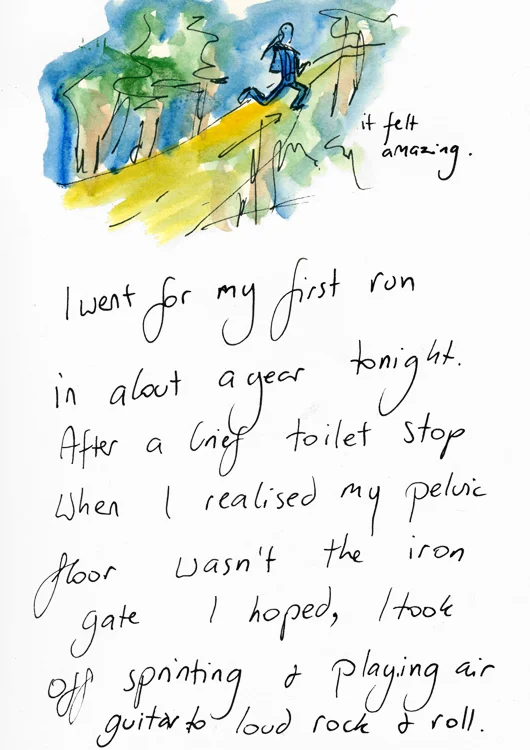 it felt
amazing.
I went for my first run
in about a year tonight.
After a brief toilet stop
when I realised my pelvic
floor wasn't the iron
gate I hoped, I took
off sprinting & playing air
guitar to loud rock & roll.